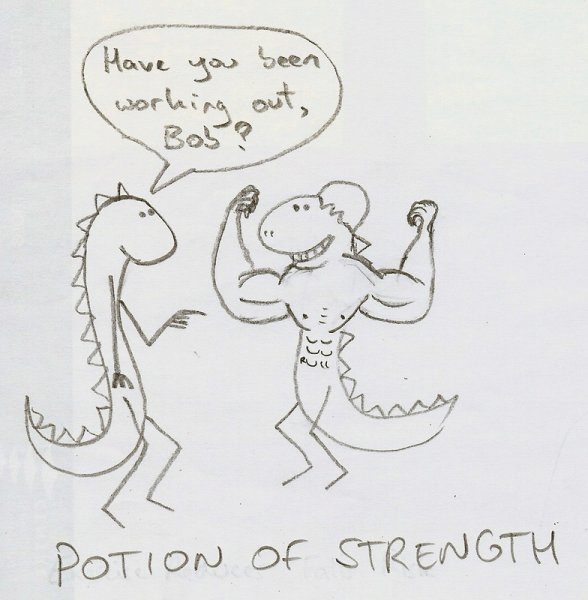 Have you been
working out,
Bob?
POTION OF STRENGTH